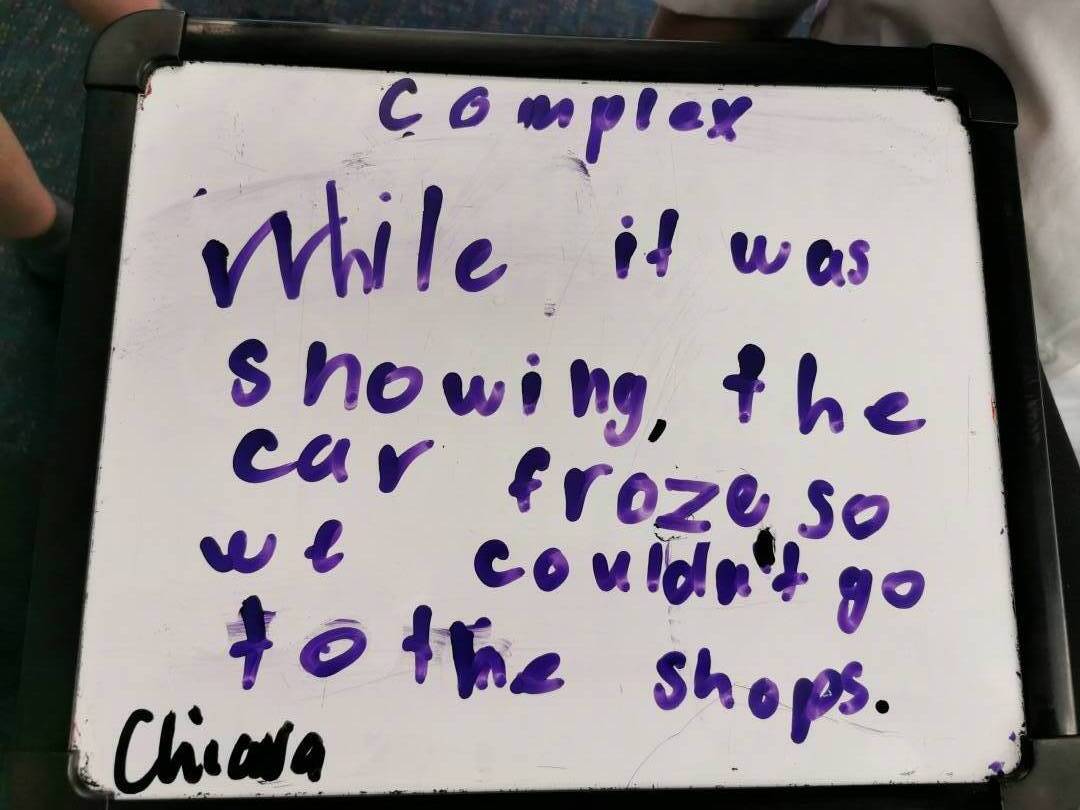 complex
While it was
snowing, the
car froze so
we couldn't go
to the shops.
Chiara